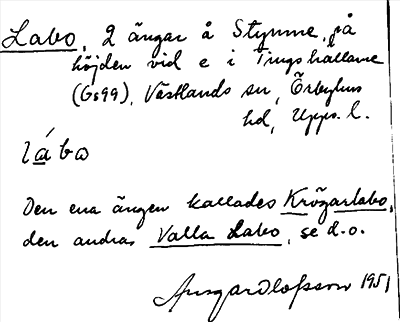 Labo, 2 ängar å Stymne, på
höjden vid e i Tingshällane
(Gs99), Västlands sn, Örbyhus
hd, Upps. l.
lábo
Den ena ängen kallades Krögarlabo,
den andra Valla Labo, se d.o.
Ansgar Olofsson 1951